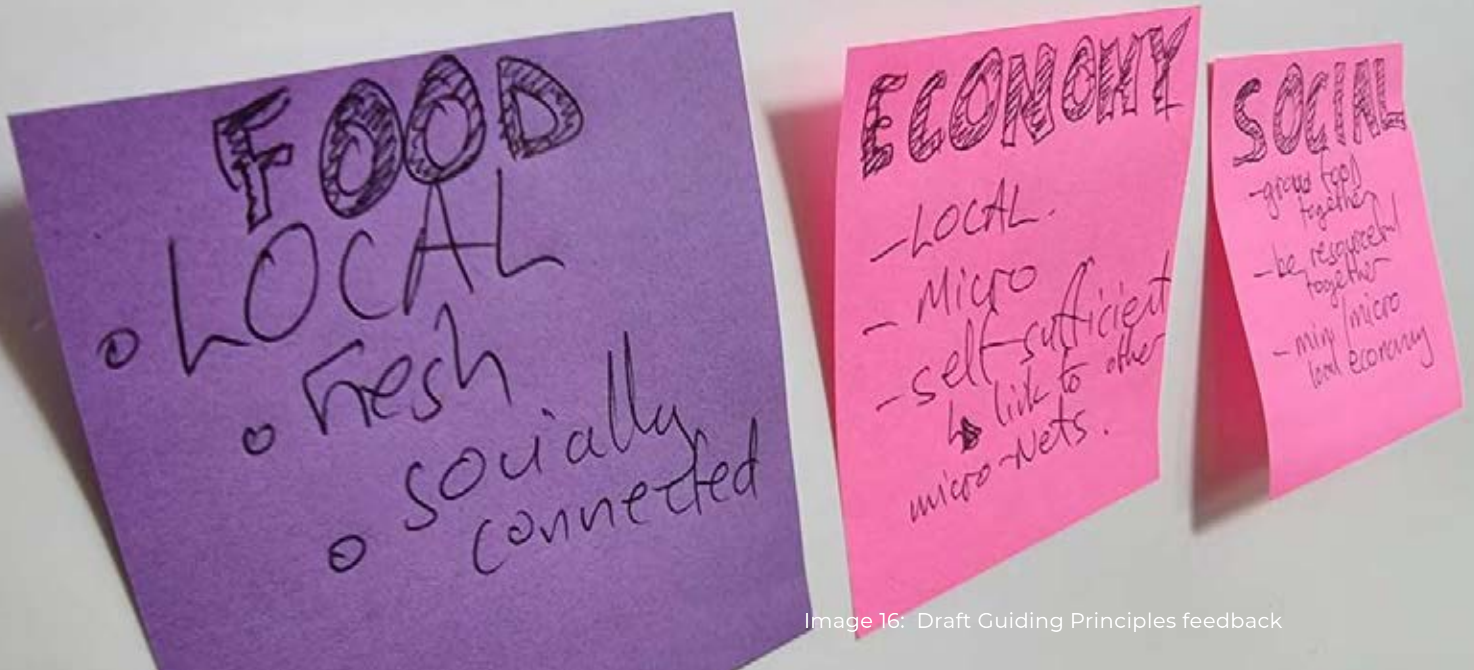 FOOD
o LOCAL
o Fresh
o socially
connected
ECONOMY
- LOCAL.
- Micro
- self-sufficient
↳ link to other
micro-Nets.
SOCIAL
- grow food
together
- be resourceful
together
- mini/micro
local economy
Image 16: Draft Guiding Principles feedback